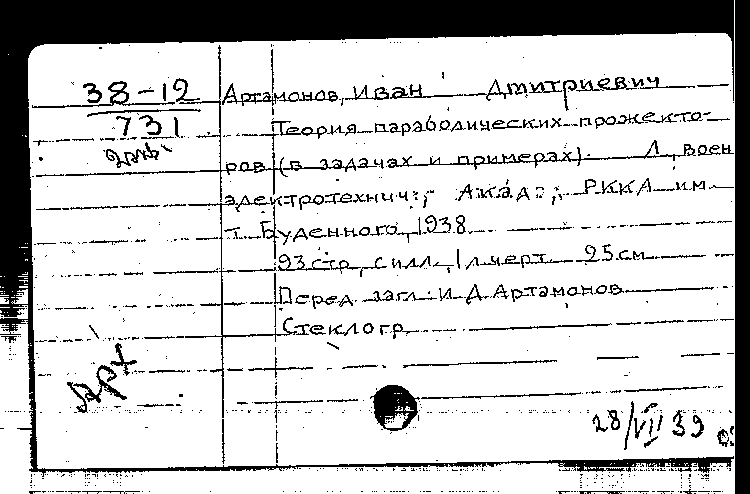 38-12
731
Артамонов, Иван Дмитриевич
Теория параболических прожекто-
ров (в задачах и примерах). Л, воен
электротехнич:, Акад:, РККА им.
т. Буденного, 1938
93 стр, с илл, 1 л черт 25 см
Перед загл: И Д Артамонов
Стеклогр.
Арх
28/VII 39